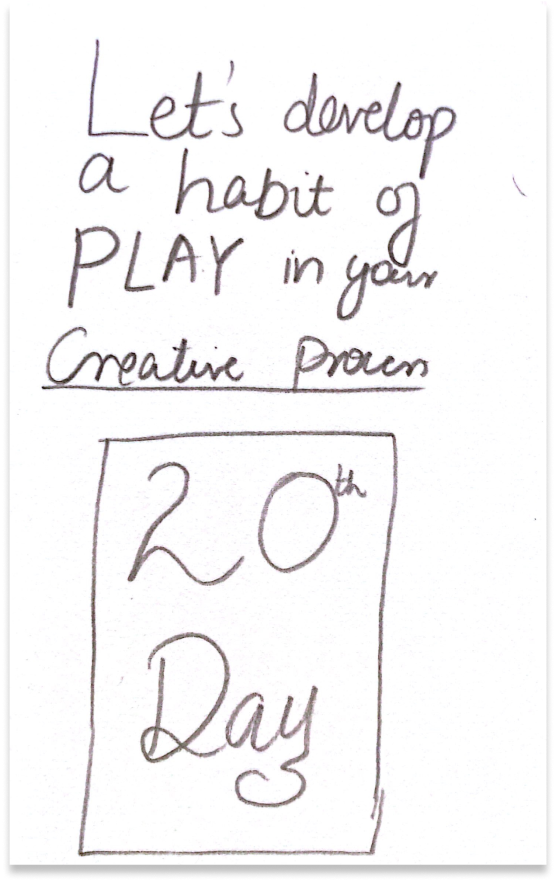 Let's develop
a habit of
PLAY in your
Creative Process
20th
Day